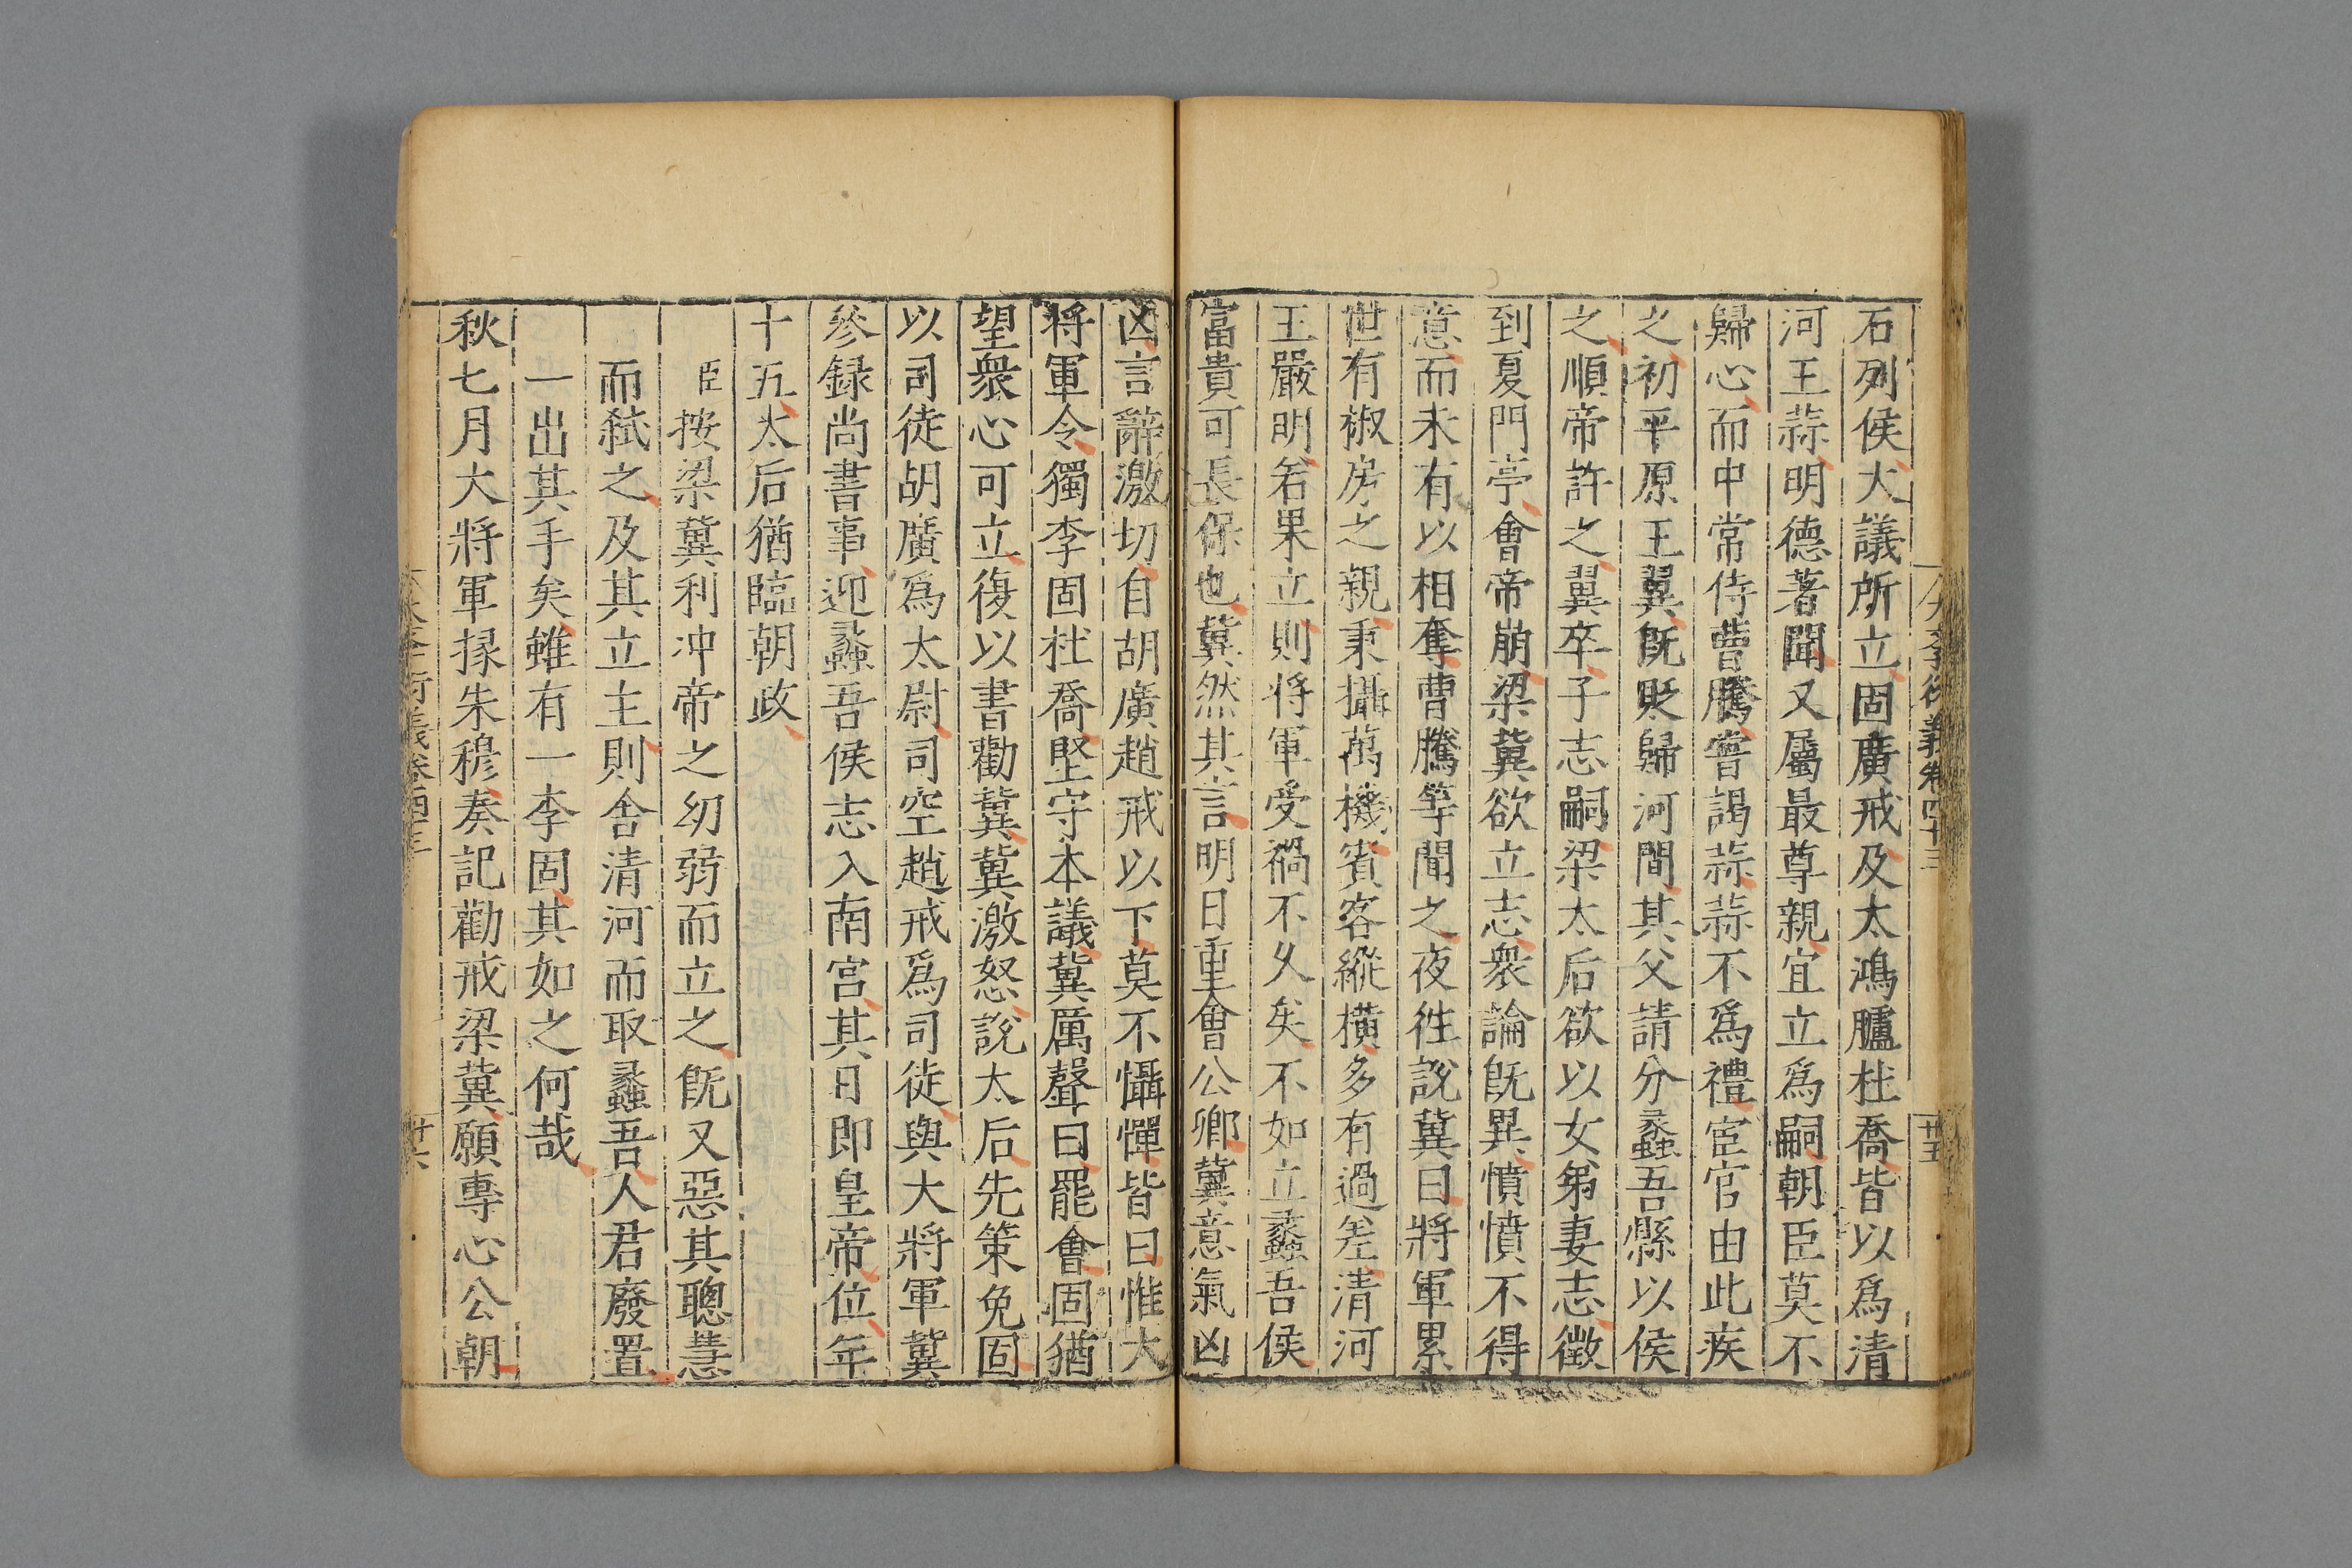 大學衍義卷四十三
廿五
石列侯大議所立固廣戒及太鴻臚杜喬皆以爲清
河王蒜明德著聞又屬最尊親宜立爲嗣朝臣莫不
歸心而中常侍曹騰嘗謁蒜蒜不爲禮宦官由此疾
之初平原王翼旣貶歸河間其父請分蠡吾縣以侯
之順帝許之翼卒子志嗣梁太后欲以女弟妻志徵
到夏門亭會帝崩梁冀欲立志衆論旣異憤憤不得
意而未有以相奪曹騰等聞之夜往說冀曰將軍累
世有椒房之親秉攝萬機賓客縱橫多有過差清河
王嚴明若果立則將軍受禍不久矣不如立蠡吾侯
富貴可長保也冀然其言明日重會公卿冀意氣凶
凶言辭激切自胡廣趙戒以下莫不懾憚皆曰惟大
將軍令獨李固杜喬堅守本議冀厲聲曰罷會固猶
望衆心可立復以書勸冀冀激怒說太后先策免固
以司徒胡廣爲太尉司空趙戒爲司徒與大將軍冀
參録尚書事迎蠡吾侯志入南宫其日即皇帝位年
十五太后猶臨朝政
臣按梁冀利冲帝之幼弱而立之旣又惡其聰慧
而弑之及其立主則舍清河而取蠡吾人君廢置
一出其手矣雖有一李固其如之何哉
秋七月大將軍掾朱穆奏記勸戒梁冀願專心公朝
廿六